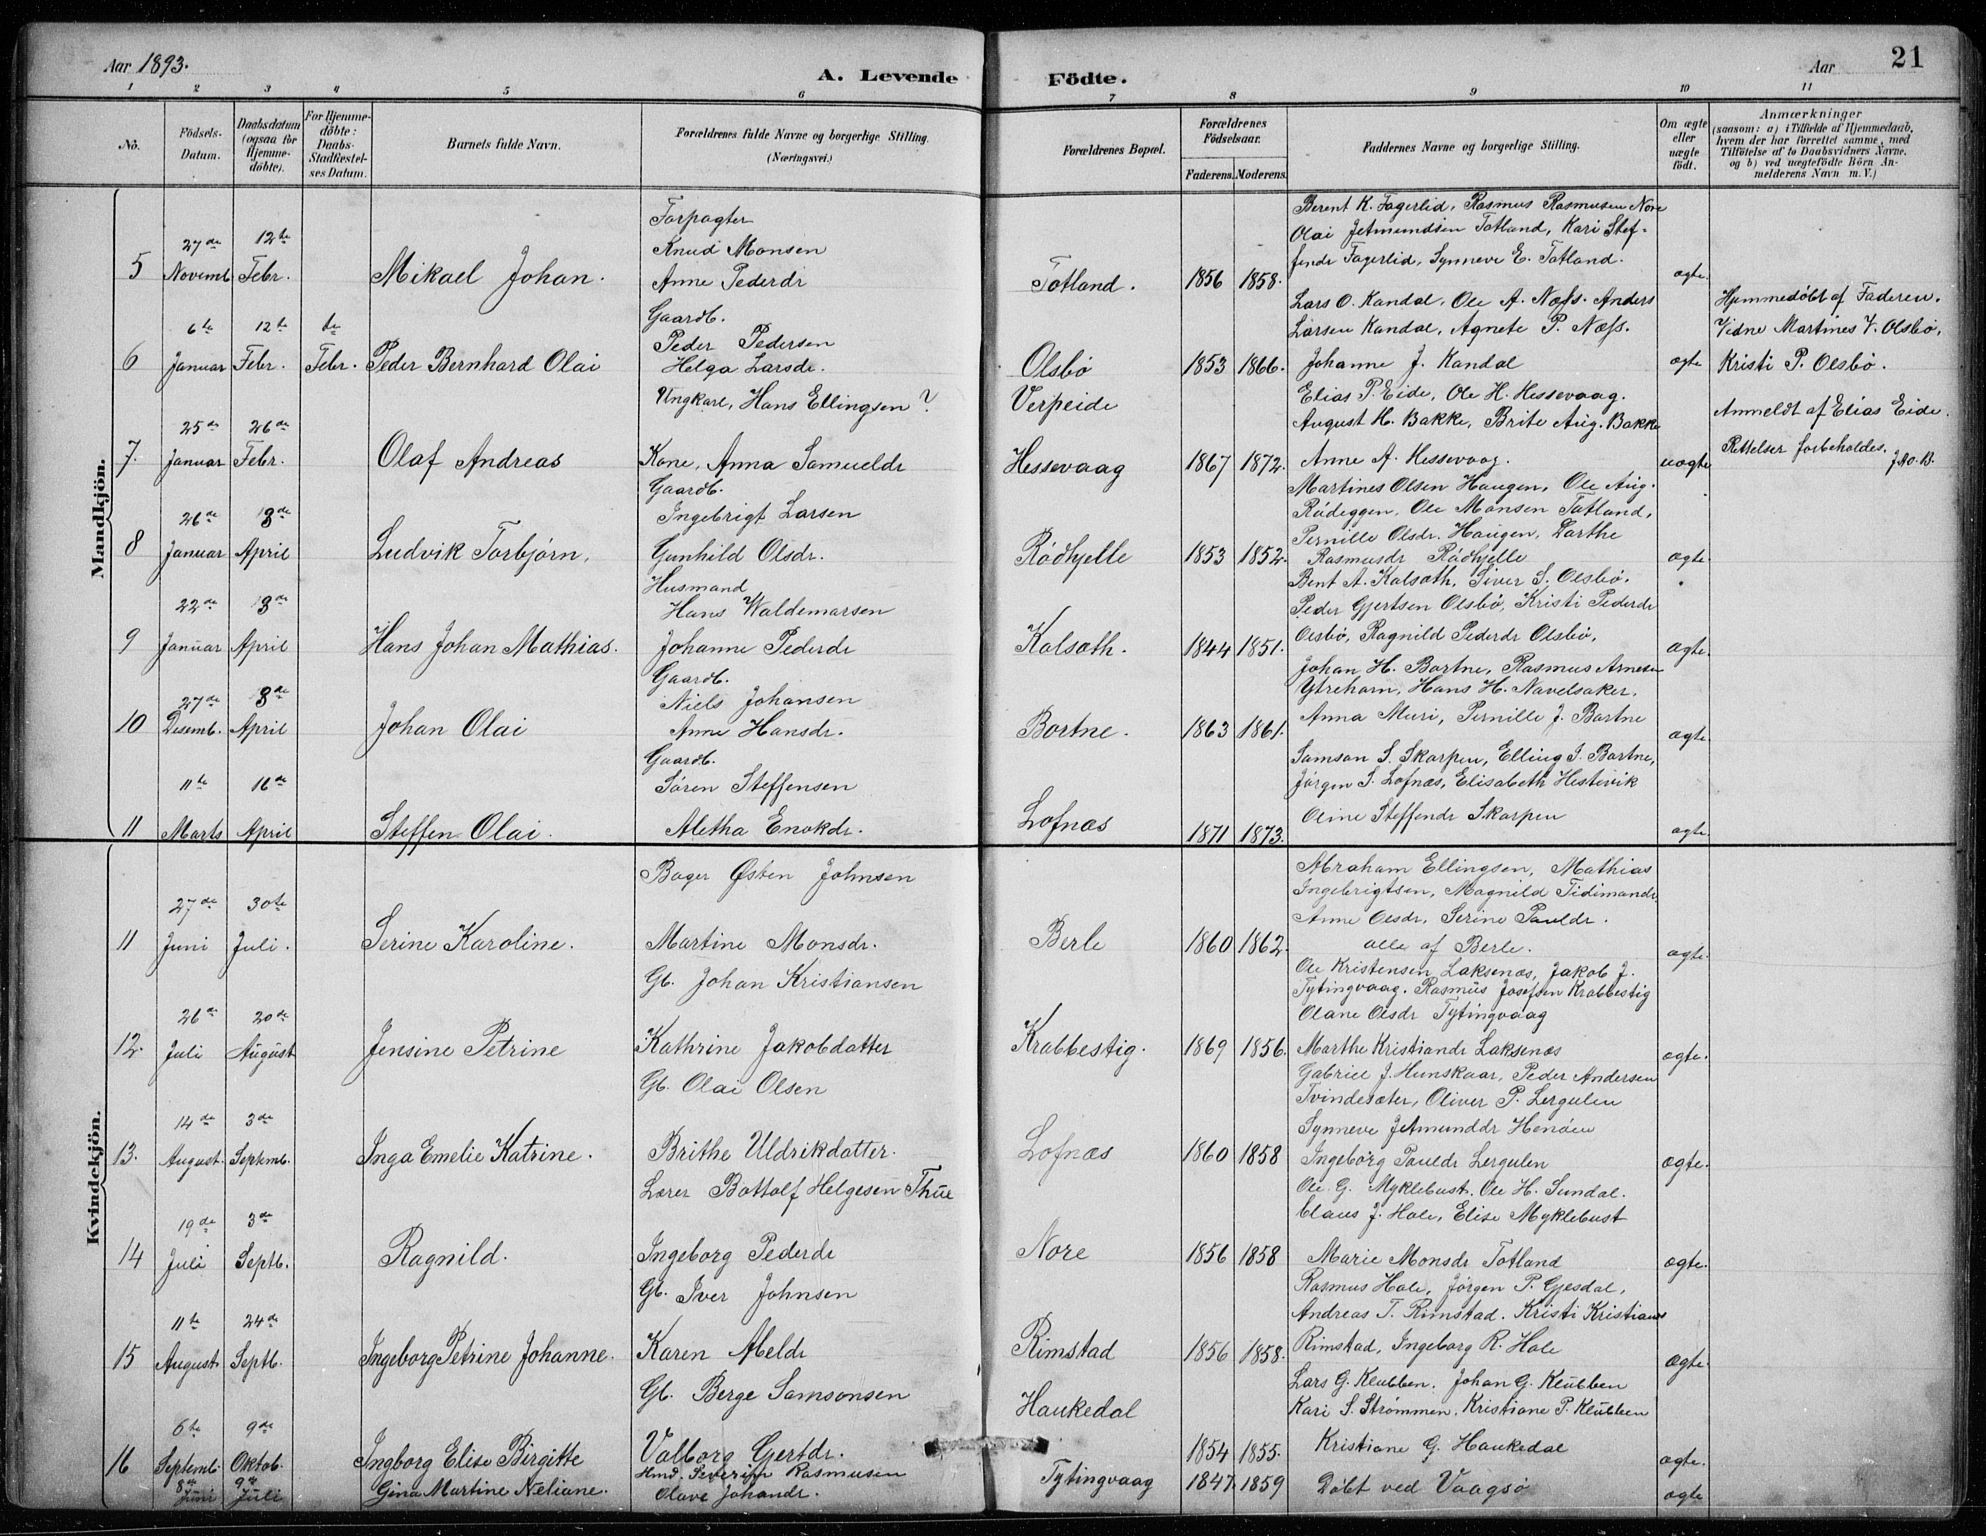 Aar 1893.
A. Levende Födte.
Aar
21
1 2 3 4 5 6 7 8 9 10 11
No.
Födsels-Datum.
Daabsdatum (ogsaa for Hjemme-döbte).
For Hjemme-döbte: Daabs-Stadfæstel-ses Datum.
Barnets fulde Navn.
Forældrenes fulde Navne og borgerlige Stilling. (Næringsvei.)
Forældrenes Bopæl.
Forældrenes Födselsaar.
Faderens. Moderens.
Faddernes Navne og borgerlige Stilling.
Om ægte eller uægte födt.
Anmærkninger
(saasom: a) i Tilfælde af Hjemmedaab,
hvem der har forrettet samme, med
Tilföielse af to Daabsvidners Navne,
og b) ved uægtefödte Börn An-
melderens Navn m.V.)
Mandkjön.
5 27de Novemb. 12te Febr. Mikael Johan.
Forpagter
Knud Monsen
Anne Pederdr
Totland. 1856 1858.
Berent K. Fagerlid, Rasmus Rasmusen Nore
Olai Jetmundsen Totland, Kari Stef-
fendr Fagerlid, Synneve E. Totland.
ægte.
6 6te Januar 12te Febr. de Febr. Peder Bernhard Olai
Gaardb.
Peder Pedersen
Helga Larsdr.
Olsbö 1853 1866.
Lars O. Kandal, Ole A. Næss. Anders
Larsen Kandal, Agnete P. Næss.
Johanne J. Kandal
ægte
Hjemmedöbt af Faderen.
Vidne Martines V. Olsbö,
Kristi P. Olsbö.
7. 25de Januar 26de Febr. Olaf Andreas
Ungkarl, Hans Ellingsen?
Kone, Anna Samueldr
Verpeide
Hessevaag 1867 1872.
Elias P. Eide, Ole H. Hessevaag.
August H. Bakke, Brite Aug. Bakke
Anne A. Hessevaag.
uægte
Anmeldt af Elias Eide.
Rettelser forbeholdes.
8 26de Januar 3de April Ludvik Torbjørn,
Gaardb.
Ingebrigt Larsen
Gunhild Olsdr.
Rödhjelle 1853 1852.
Martines Olsen Haugen, Ole Aug.
Rödeggen, Ole Monsen Totland,
Pernille Olsdr. Haugen, Larthe
Rasmusdr Rödhjelle
ægte.
9 22de Januar 3de April Hans Johan Mathias.
Husmand
Hans Waldemarsen
Johanne Pederdr
Kalsath. 1844 1851.
Bent A. Kalsath, Siver S. Olsbö.
Peder Gjertsen Olsbö, Kristi Pederdr
Olsbö, Ragnild Pederdr Olsbö,
ægte.
10 27de Desemb. 3de April Johan Olai
Gaardb.
Niels Johansen
Anne Hansdr.
Bortne. 1863 1861.
Johan H. Bortne, Rasmus Arnesen
Ytrehorn, Hans H. Navelsaker.
Anna Muri, Pernille J. Bortne
ægte.
11 11te Marts 16de April Steffen Olai.
Gaardb.
Sören Steffensen
Aletha Enokdr.
Lofnæs 1871 1873.
Samson S. Skarpen, Elling S. Bortne,
Jörgen S. Lofnæs, Elisabeth Hestevik
Oline Steffendr Skarpen
ægte.
Kvindekjön.
11 27de Juni 30te Juli. Serine Karoline.
Bager Østen Johnsen
Martine Monsdr.
Berle 1860 1862.
Abraham Ellingsen, Mathias
Ingebrigtsen, Magnild Tidimandr,
Anne Olsdr, Serine Pauldr.
alle af Berle.
ægte.
12. 26de Juli 20de August Jensine Petrine
Gb. Johan Kristiansen
Kathrine Jakobdatter
Krabbestig. 1869 1856.
Ole Kristensen Laksenæs, Jakob J.
Tytingvaag. Rasmus Josefsen Krabbestig
Olane Olsdr Tytingvaag
Marthe Kristiandr Laksenæs
ægte.
13. 14de August 3de Septemb. Inga Emelie Katrine.
Gb. Olai Olsen
Brithe Uldrikdatter.
Lofnæs 1860 1858
Gabriel J. Hunskaar, Peder Andersen
Tvindesæter, Oliver P. Lergulen
Synneve Jetmunddr Henöen
Ingeborg Pauldr Lergulen
ægte.
14 19de Juli 3de Septb. Ragnild.
Lærer Bottolf Helgesen Thue
Ingeborg Pederdr
Nore 1856 1858
Ole G. Myklebust. Ole H. Sundal.
Claus J. Hole, Elise Myklebust
Marie Monsdr Totland
ægte.
15 11te August 24de Septb. Ingeborg Petrine Johanne.
Gb. Iver Johnsen
Karen Abeldr
Rimstad 1856 1858.
Rasmus Hole, Jørgen P. Gjesdal,
Andreas T. Rimstad. Kristi Kristians
Rimstad, Ingeborg R. Hole
ægte.
16 6te Septemb. 9de Oktob. Ingborg Elise Birgitte
Gb. Berge Samsonsen
Valborg Gjertdr.
Haukedal 1854 1855.
Lars G. Klubben. Johan G. Klubben
Kari S. Strømmen. Kristiane P. Klubben
Kristiane G. Haukedal
ægte.
8de Juni 9de Juli Gina Martine Neliane.
Hmd. Severin Rasmusen
Olave Johandr.
Tytingvaag 1847 1859 Döbt ved Vaagsö ægte